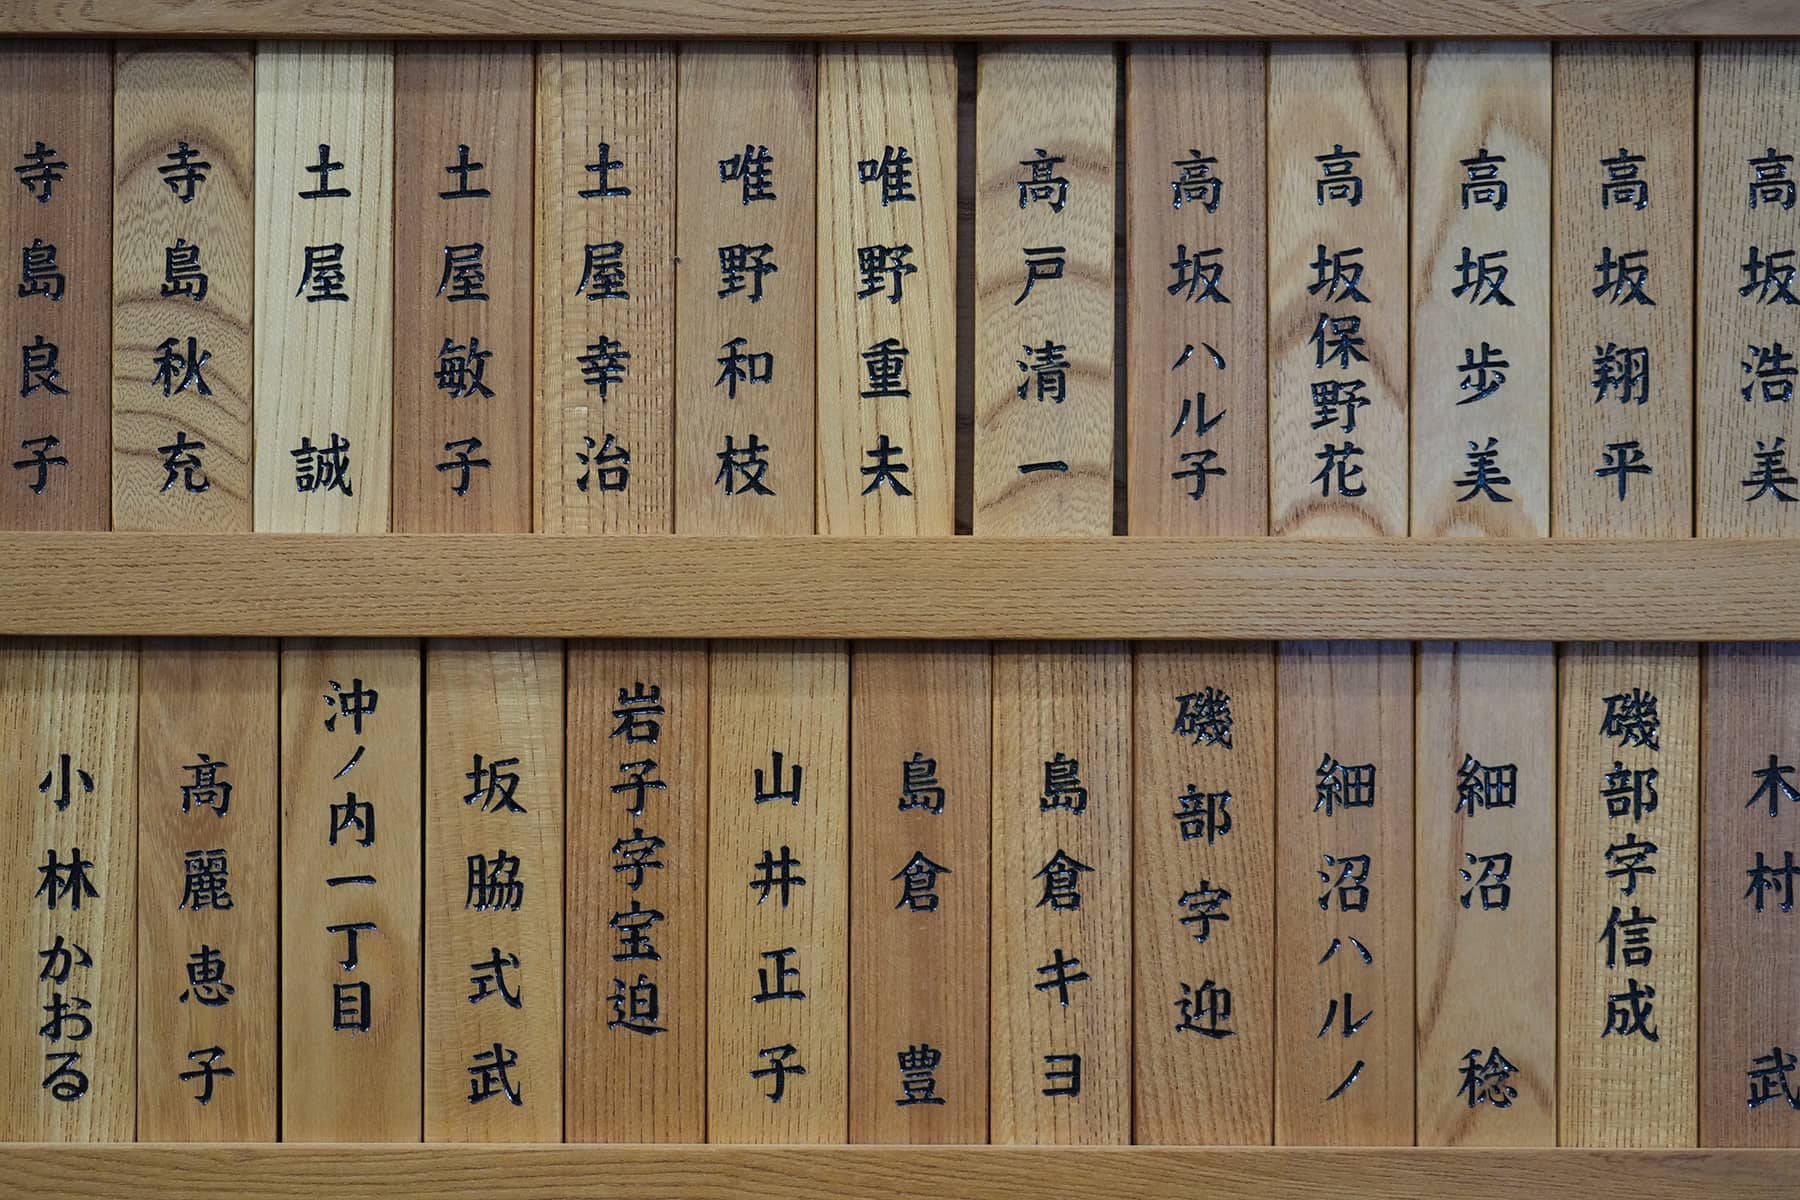 高坂浩美
高坂翔平
高坂歩美
高坂保野花
高坂ハル子
髙戸清一
唯野重夫
唯野和枝
土屋幸治
土屋敏子
土屋誠
寺島秋充
寺島良子
木村武
磯部字信成
細沼稔
細沼ハルノ
磯部字迎
島倉キヨ
島倉豊
山井正子
岩子字宝迫
坂脇式武
沖ノ内一丁目
髙麗恵子
小林かおる